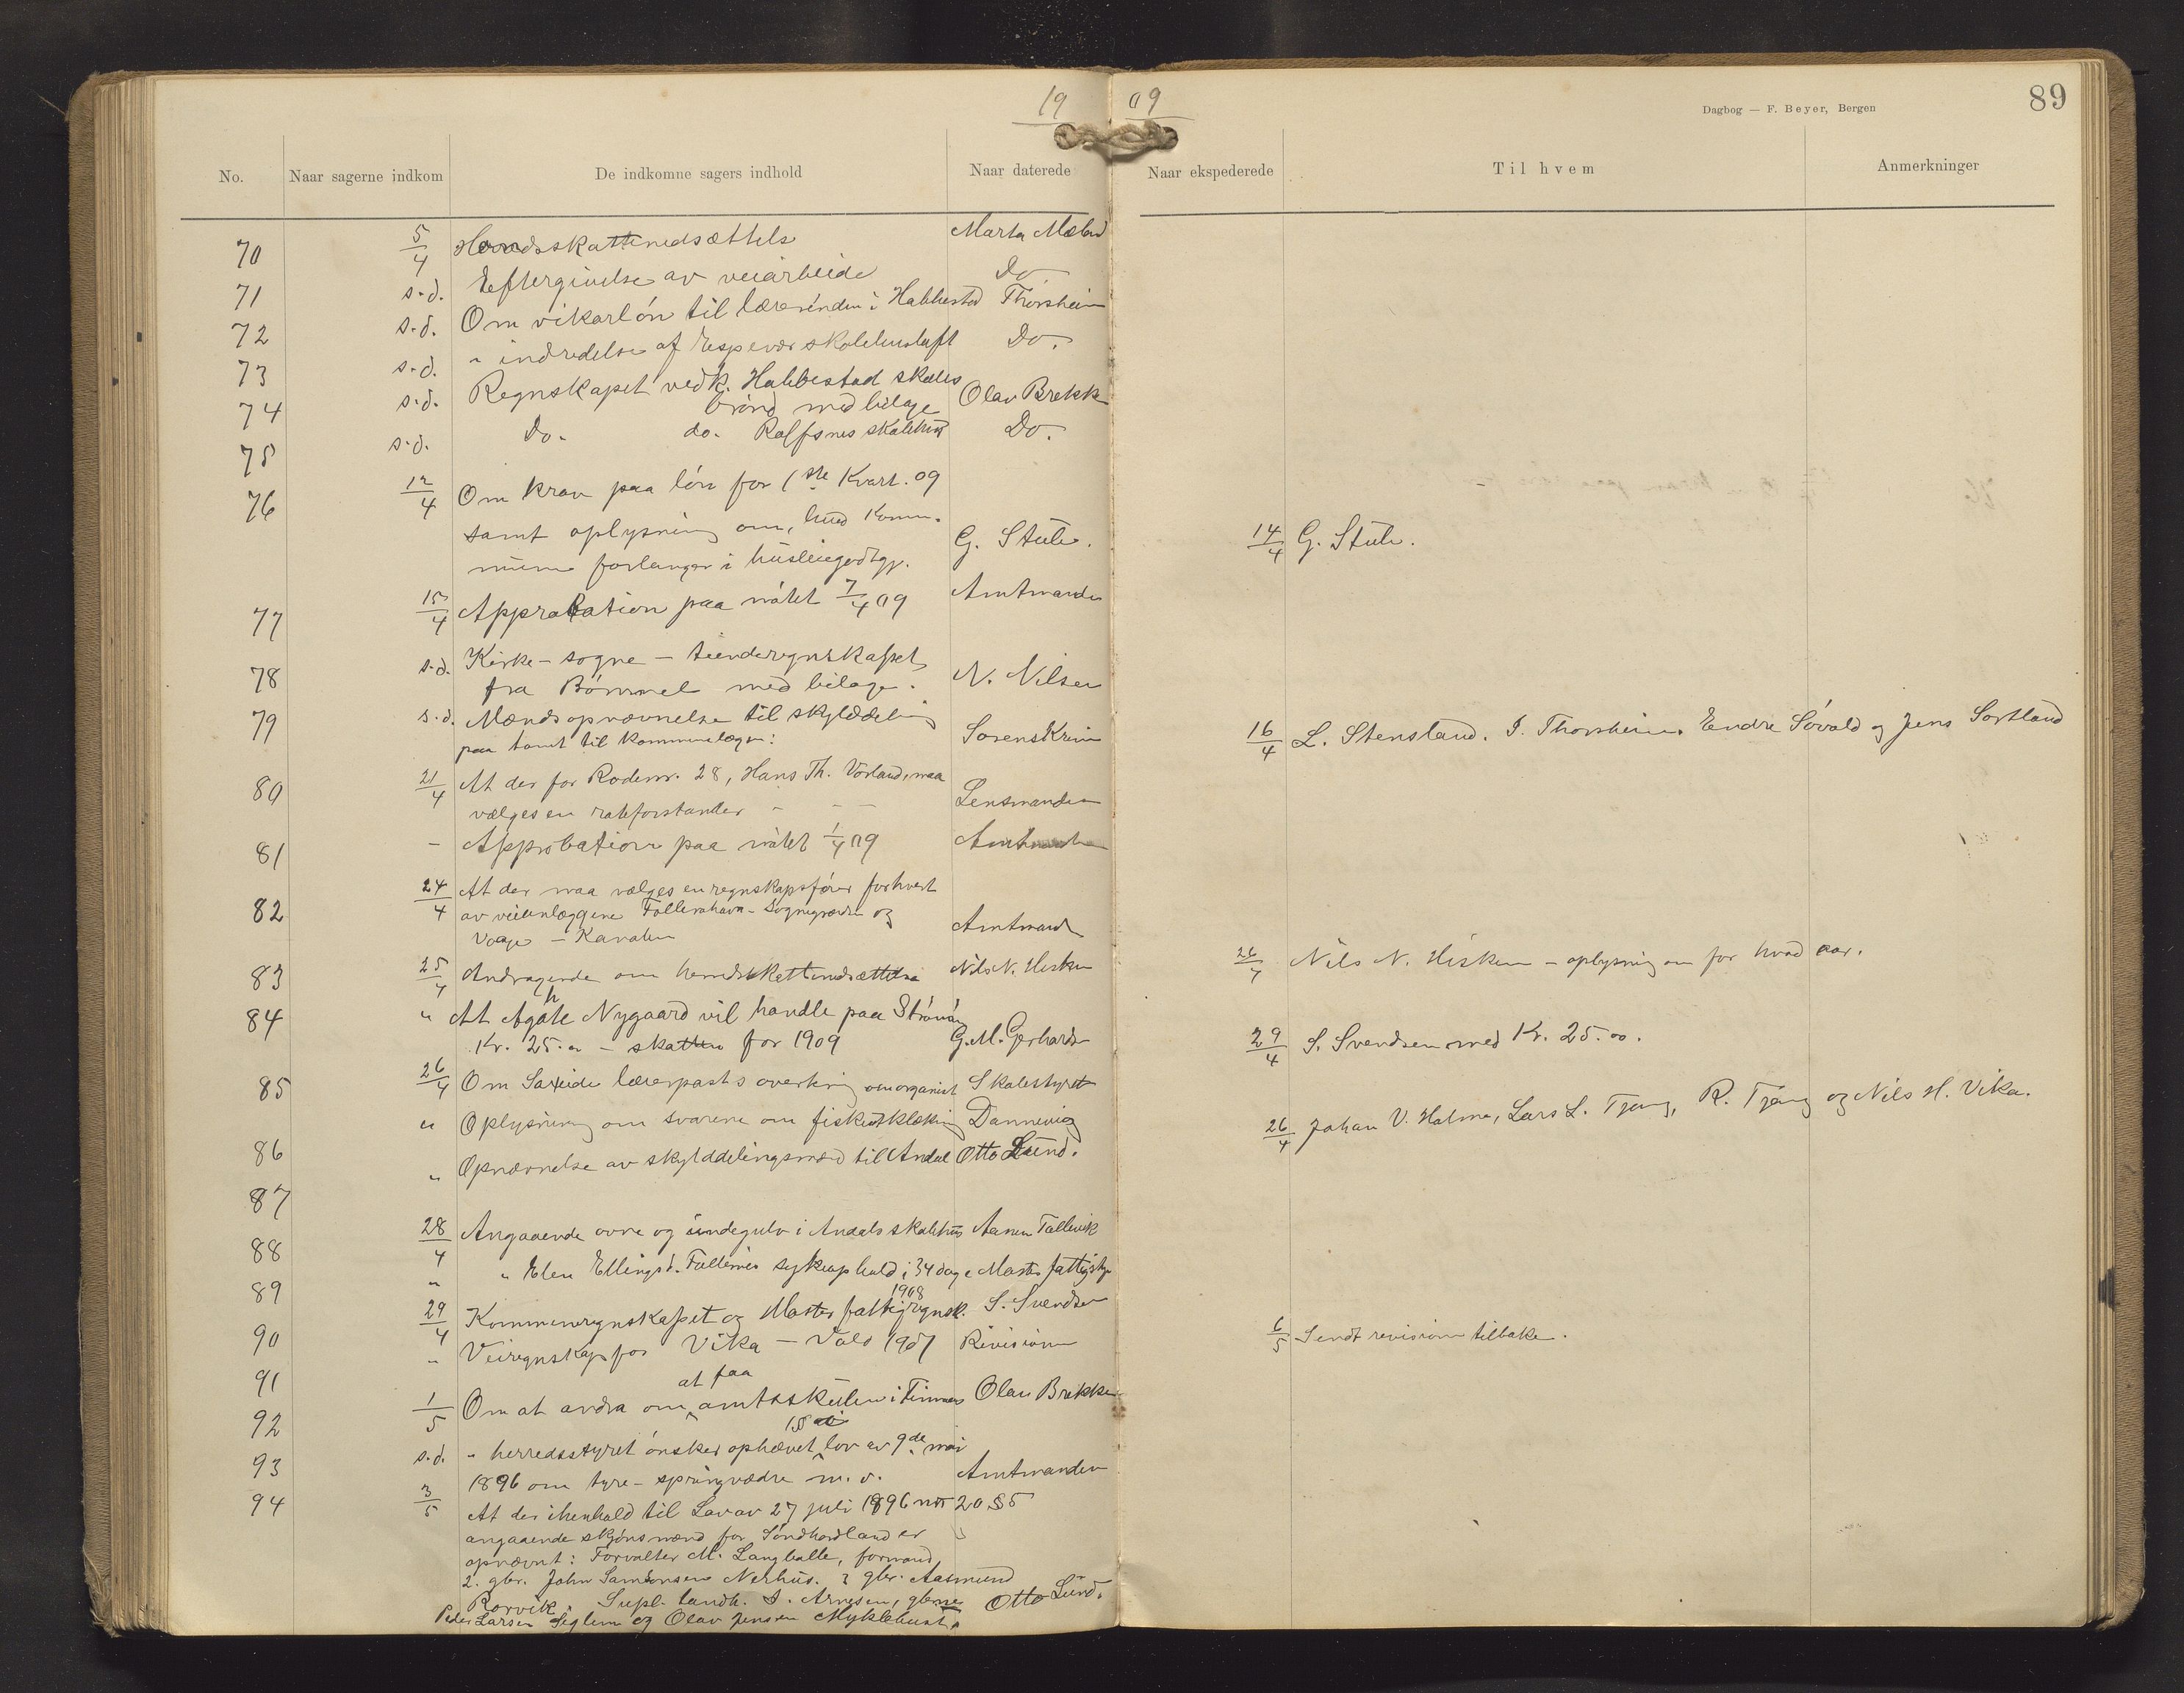 19 09
Dagbog — F. Beyer, Bergen
89
No. Naar sagerne indkom De indkomne sagers indhold Naar daterede Naar ekspederede Til hvem Anmerkninger
70 5/4 Herredsskattenedsættelse Marta Mæland
71 s.d. Eftergivelse av veiarbeide Do
72 s.d. Om vikarløn til lærerinden i Habbestad Thorsheim
73 s.d. " indredelse af Espevær skolehusloft Do.
74 s.d. Regnskapet vedk. Habbestad skoles Olav Brekke
brønd med bilage
75 s.d. Do. do. Rolfsnes skolehus Do.
76 12/4 Om krav paa løn for 1ste Kvart. 09
samt oplysning om, hvad Kom-
mune forlanger i husleiegodtgj. G. Stule. 14/4 G. Stule.
77 15/4 Approbation paa møtet 7/4 09 Amtmanden
78 s.d. Kirke - sogne - tienderegnskapet
fra Bømmel med bilage. N. Nilsen
79 s.d. Mænds opnævnelse til skylddeling
paa tomt til kommunelægen: Sorenskriv 16/4 L. Stensland. I. Thorsheim. Endre Søvold og Jens Sortland
80 21/4 At der for Rodenr. 28, Hans Th. Vorland, maa
vælges en rodeforstander - - - Lensmanden
81 - Approbation paa møtet 1/4 09 Amtmanden
82 24/4 At der maa vælges en regnskapsfører for hvert
av veianlæggene Follerøhavn - Sognegrænsen og
Vaage - Kanalen Amtmand
83 25/4 Andragende om herredsskattenedsættelse Nils N. Hisken 26/4 Nils N. Hisken - oplysning om for hvad aar.
84 " At Agathe Nygaard vil handle paa Strønøen
Kr. 25.00 - skatten for 1909 G.M. Gerhards 29/4 S. Svendsen med Kr. 25.00.
85 26/4 Om Særeide lærerposts overtking omorganist Skolestyret
86 " Oplysning om svarene om fiskeutklækning Dannevig
87 " Opnævnelse av skylddelingsmænd til Andal Otto Lund. 26/4 Johan V. Holme, Lars L. Tjong, R. Tjong og Nils H. Vika.
88 28/4 Angaaende ovne og undegulv i Andals skolehus Aanen Tollevik
89 " " Elen Ellingsd. Follernes sykeophold i 34 dage Mosters fattigsty
90 29/4 Kommuneregnskapet og Mosters fattigregnsk. 1908 S. Svendsen
91 " Veiregnskap for Vika - Vold 1907 Revisionen 6/5 Sendt revisionen tilbake.
92 1/5 Om at andra om at faa amtsskulen i Finnaas Olav Brekke
93 s.d. " herredsstyret ønsker ophævet lov av 9de mai
1896 om tyre - springvædre m. v. Amtmanden
94 3/5 At der ihenhold til Lov av 27 juli 1896 nr 20 § 5
angaaende skjønsmænd for Søndhordland er
opnævnt: Forvalter M. Langballe, formand,
2. gbr. John Samsonsen Nerhus. 3 gbr. Aasmund
Rørvik. Supl. landh. I. Arnesen, gbrne Otto Lund.
Peder Larsen Seglem og Olav Jensen Myklebust.